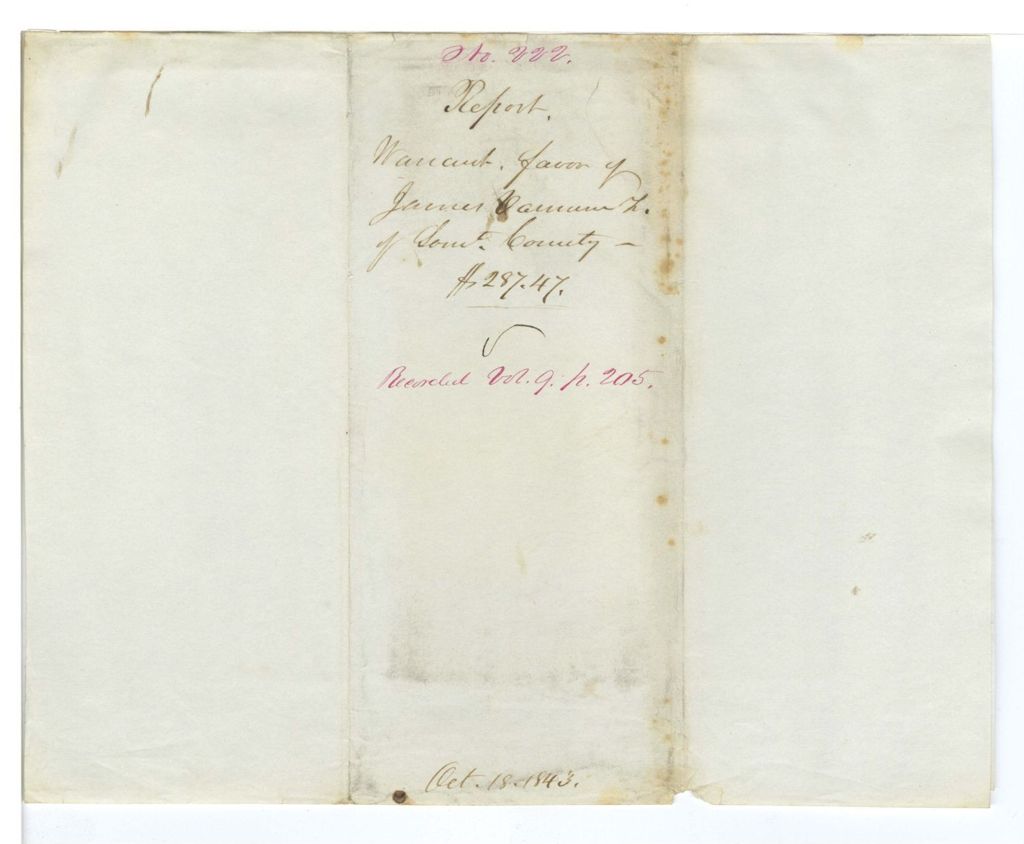 No. 222.
Report.
Warrant. favor of
James Varnum Tr.
of Somt. County –
$287.47.
Recorded Vol. 9. p. 205.
Oct. 18. 1843.